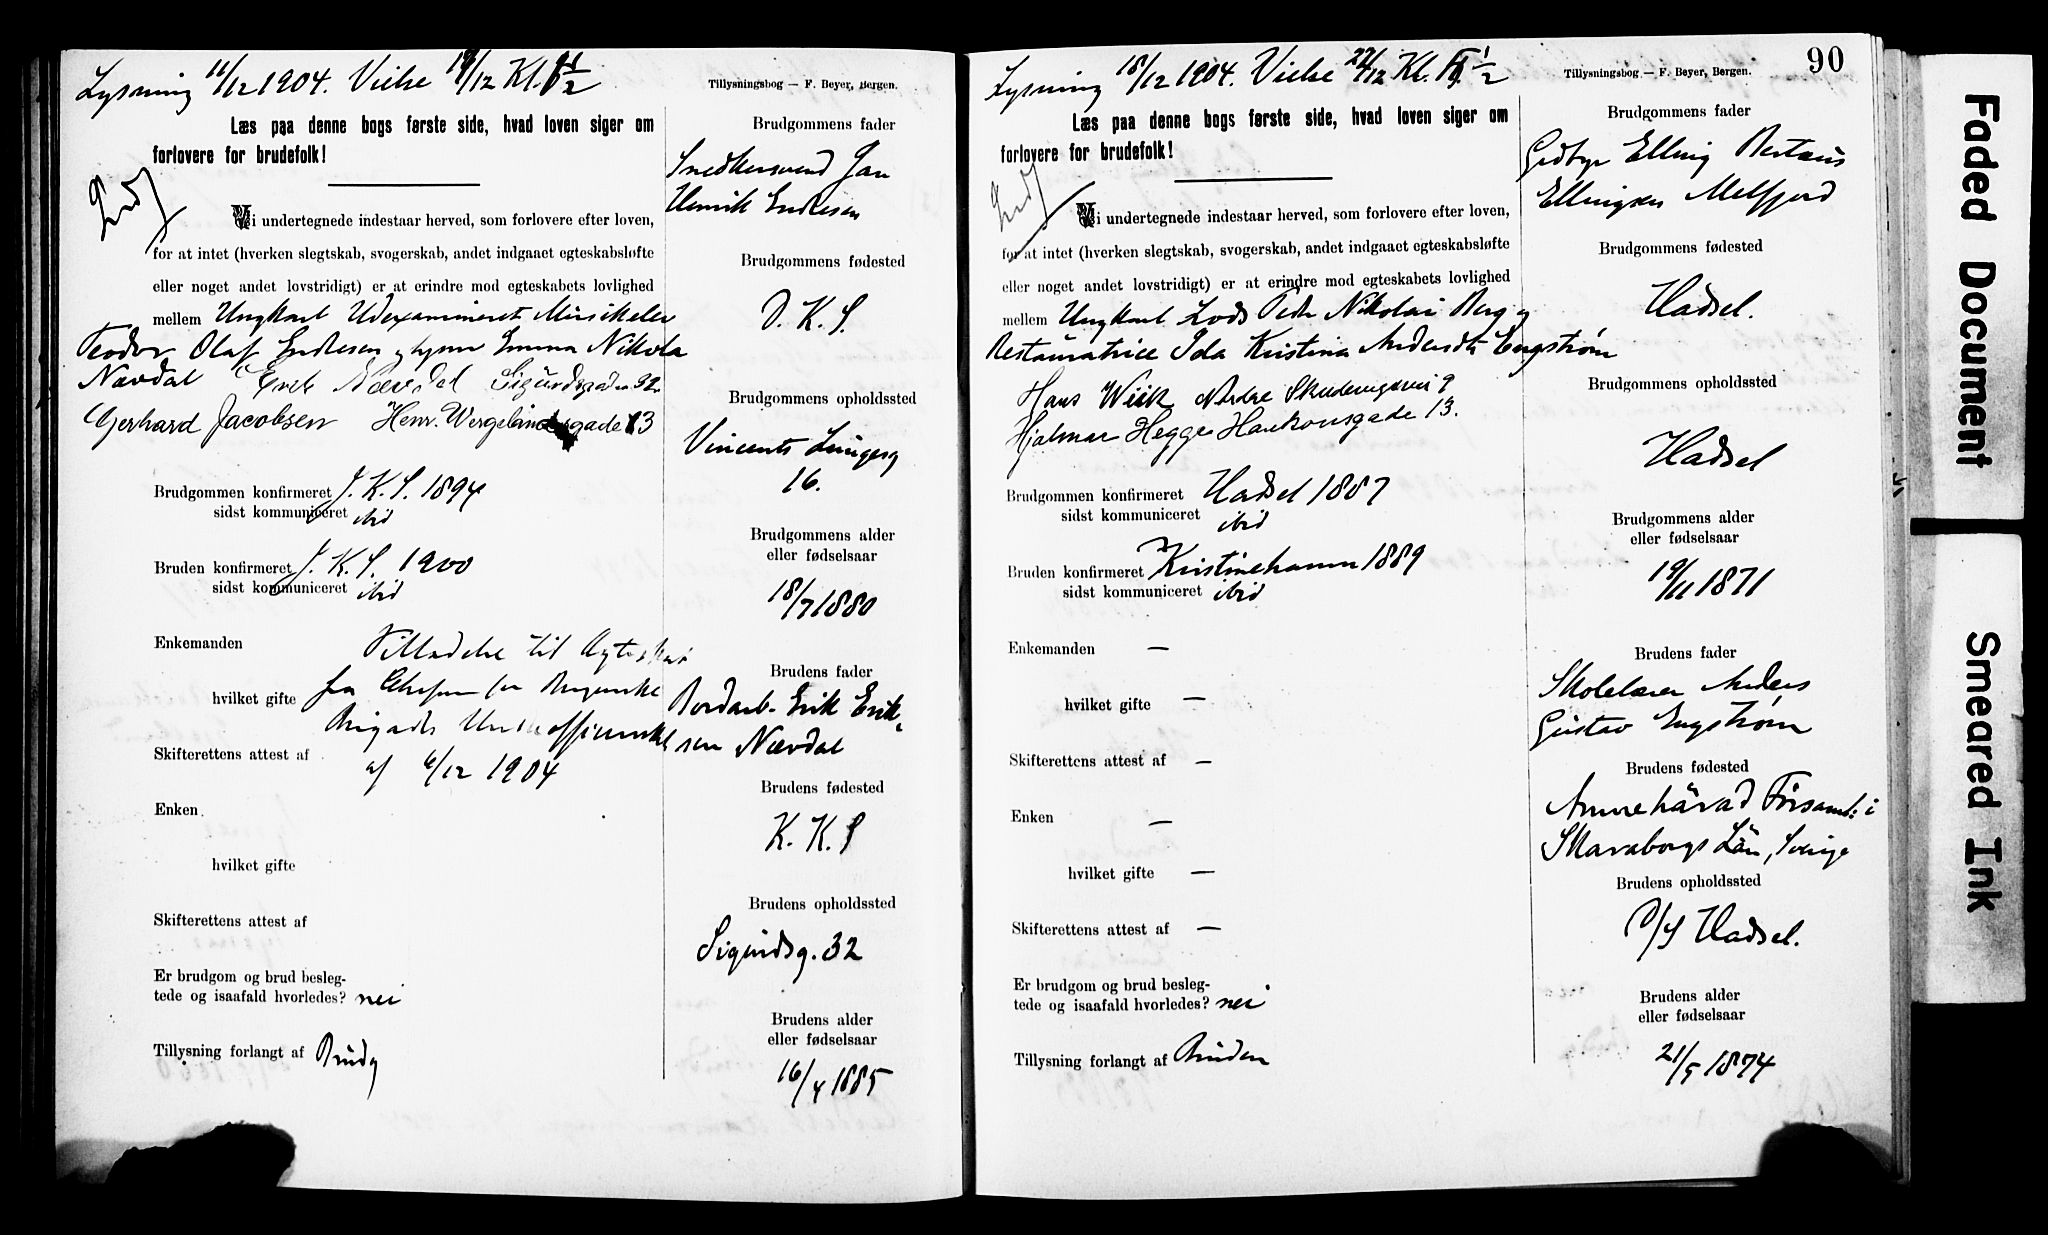 Lysning 11/12 1904. Vielse 19/12 Kl. 1/2
Tillysningsbog — F. Beyer, Bergen.
Læs paa denne bogs første side, hvad loven siger om
forlovere for brudefolk!
Vi undertegnede indestaar herved, som forlovere efter loven,
for at intet (hverken slegtskab, svogerskab, andet indgaaet egteskabsløfte
eller noget andet lovstridigt) er at erindre mod egteskabets lovlighed
mellem Ungkarl Udexamineret Musikelev
Teodor Olaf Endresen og Emma Nikola
Nævdal Erik Nævdal Sigurdsgaden 32
Gerhard Jacobsen Henr. Wergelandsgade 3
Brudgommen konfirmeret J. K. S. 1894
sidst kommuniceret ibid
Bruden konfirmeret J. K. S. 1900
sidst kommuniceret ibid
Enkemanden
Tilladelse til Ægteskab
fra Chefen for Bergenske
hvilket gifte
Brigades Underofficerskole
Skifterettens attest af
af 6/12 1904
Enken
hvilket gifte
Skifterettens attest af
Er brudgom og brud besleg-
tede og isaafald hvorledes? nei
Tillysning forlangt af Brudg
Brudgommens fader
Snedkersvend Jan
Henrik Endresen
Brudgommens fødested
D. K. S.
Brudgommens opholdssted
Vincents Lungesg
16.
Brudgommens alder
eller fødselsaar
18/7 1880
Brudens fader
Bordarb. Erik Erik-
sen Nævdal
Brudens fødested
K. K. S
Brudens opholdssted
Sigurdsg. 32
Brudens alder
eller fødselsaar
16/4 1885
Lysning 18/12 1904. Vielse 27/12 Kl. 1/2
Tillysningsbog — F. Beyer, Bergen.
90
Læs paa denne bogs første side, hvad loven siger om
forlovere for brudefolk!
Vi undertegnede indestaar herved, som forlovere efter loven,
for at intet (hverken slegtskab, svogerskab, andet indgaaet egteskabsløfte
eller noget andet lovstridigt) er at erindre mod egteskabets lovlighed
mellem Ungkarl Lods Peder Nikolai Berg og
Restauratrice Ida Kristina Andersdtr Engstrøm
Hans Wiik Nedre Skudeviksvei 9
Hjalmar Hegge Haakonsgade 13.
Brudgommen konfirmeret Hadsel 1887
sidst kommuniceret ibid
Bruden konfirmeret Kristinehamn 1889
sidst kommuniceret ibid
Enkemanden —
hvilket gifte —
Skifterettens attest af —
Enken —
hvilket gifte —
Skifterettens attest af —
Er brudgom og brud besleg-
tede og isaafald hvorledes? nei
Tillysning forlangt af Bruden
Brudgommens fader
Elling Bertæus
Ellingsen Melfjord
Brudgommens fødested
Hadsel.
Brudgommens opholdssted
Hadsel
Brudgommens alder
eller fødselsaar
19/11 1871
Brudens fader
Skolelærer Anders
Gustav Engstrøm
Brudens fødested
Amnehärad Församl. i
Skaraborgs Län, Sverige
Brudens opholdssted
D/S Hadsel.
Brudens alder
eller fødselsaar
21/5 1874
Faded Document
Smeared Ink